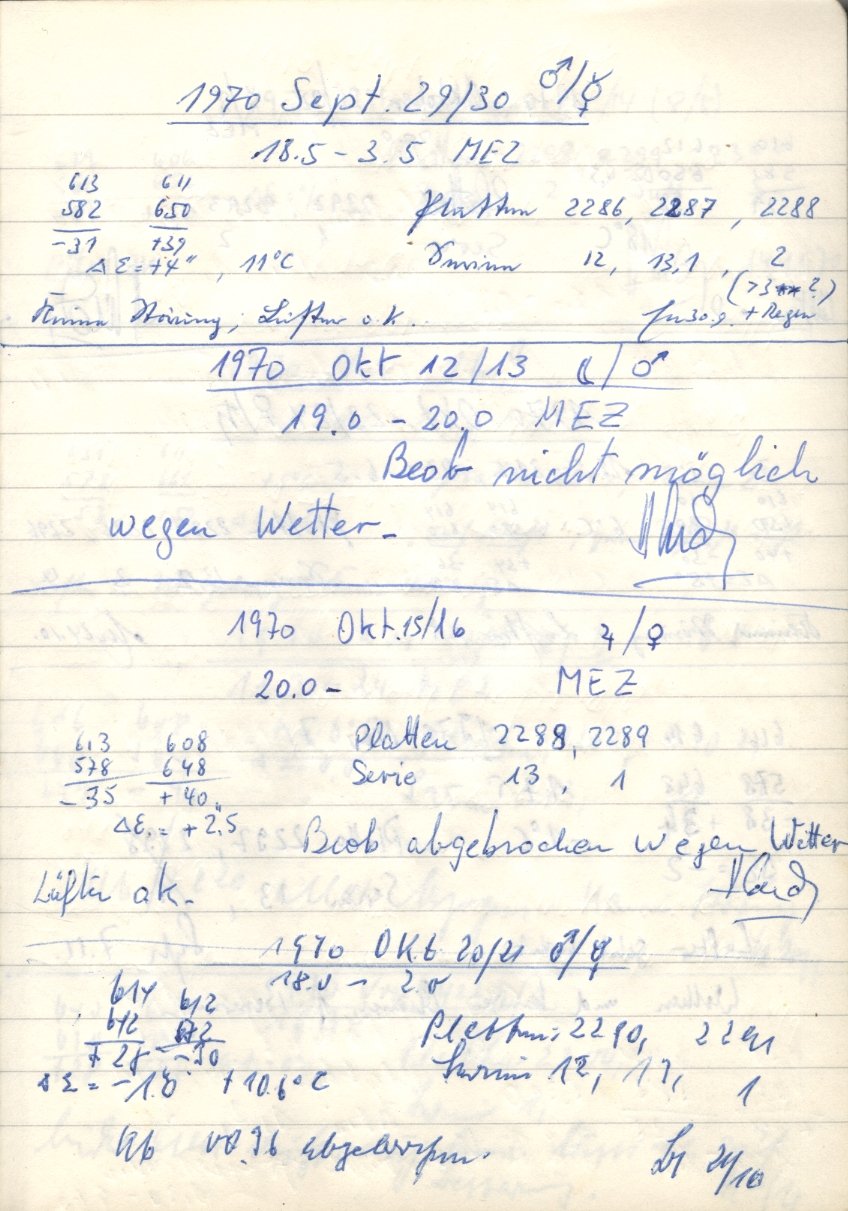 1970 Sept. 29/30 ♂/☿
18.5 - 3.5 MEZ
613 611
582 650 Platten 2286, 2287, 2288
-31 +39
Δε = +4" , 11°C Serien 12, 13,1, 2
(>3 ?)
Keine Störung, Lüfter o.k. 30.9. + Regen
1970 Okt 12/13 ☾/♂
19.0 - 20.0 MEZ
Beob nicht möglich
wegen Wetter-
1970 Okt. 15/16 ♃/♀
20.0 - MEZ
613 608 Platten 2288, 2289
578 648 Serie 13, 1
-35 +40
Δε = +2",5
Beob abgebrochen wegen Wetter
Lüfter ok.
1970 Okt 20/21 ♂/☿
18.0 - 2.0
614 612
642 Platten: 2290, 2291
+28 -30 Serien 12, 13, 1
Δε = -1.0" +10.6°C
Ab abgebrochen.
21/10